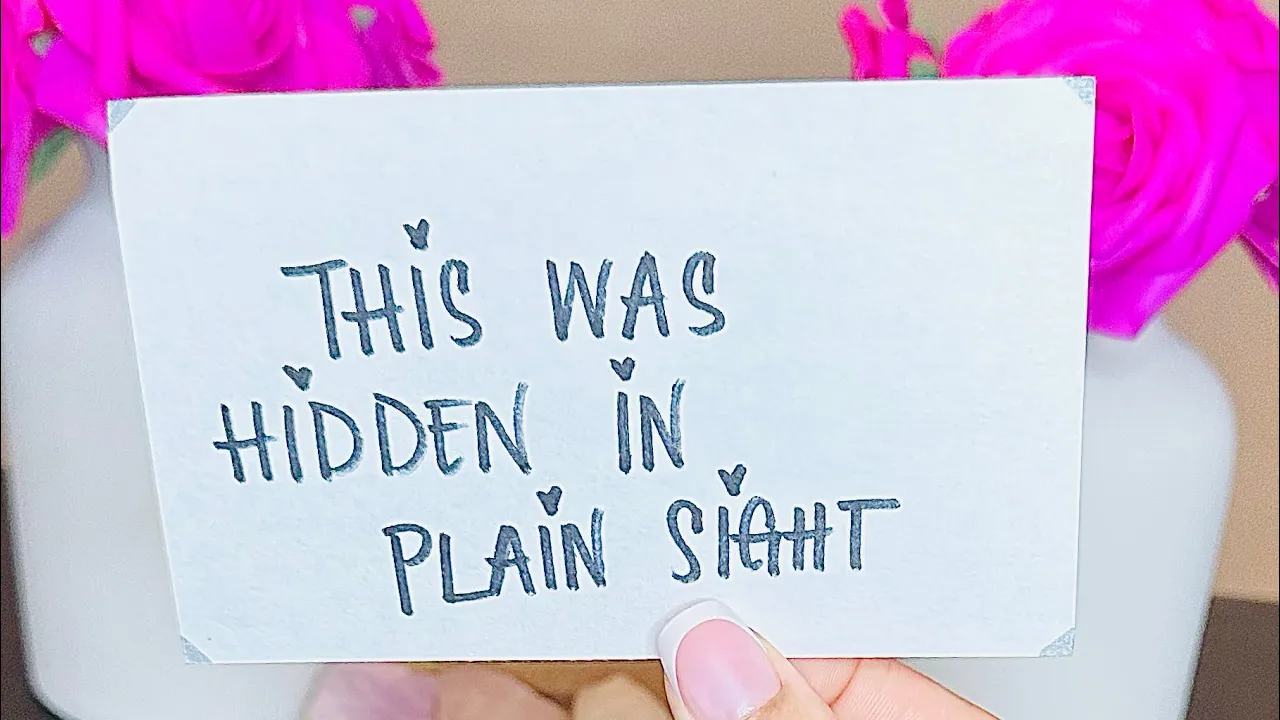 THIS WAS
HIDDEN IN
PLAIN SIGHT